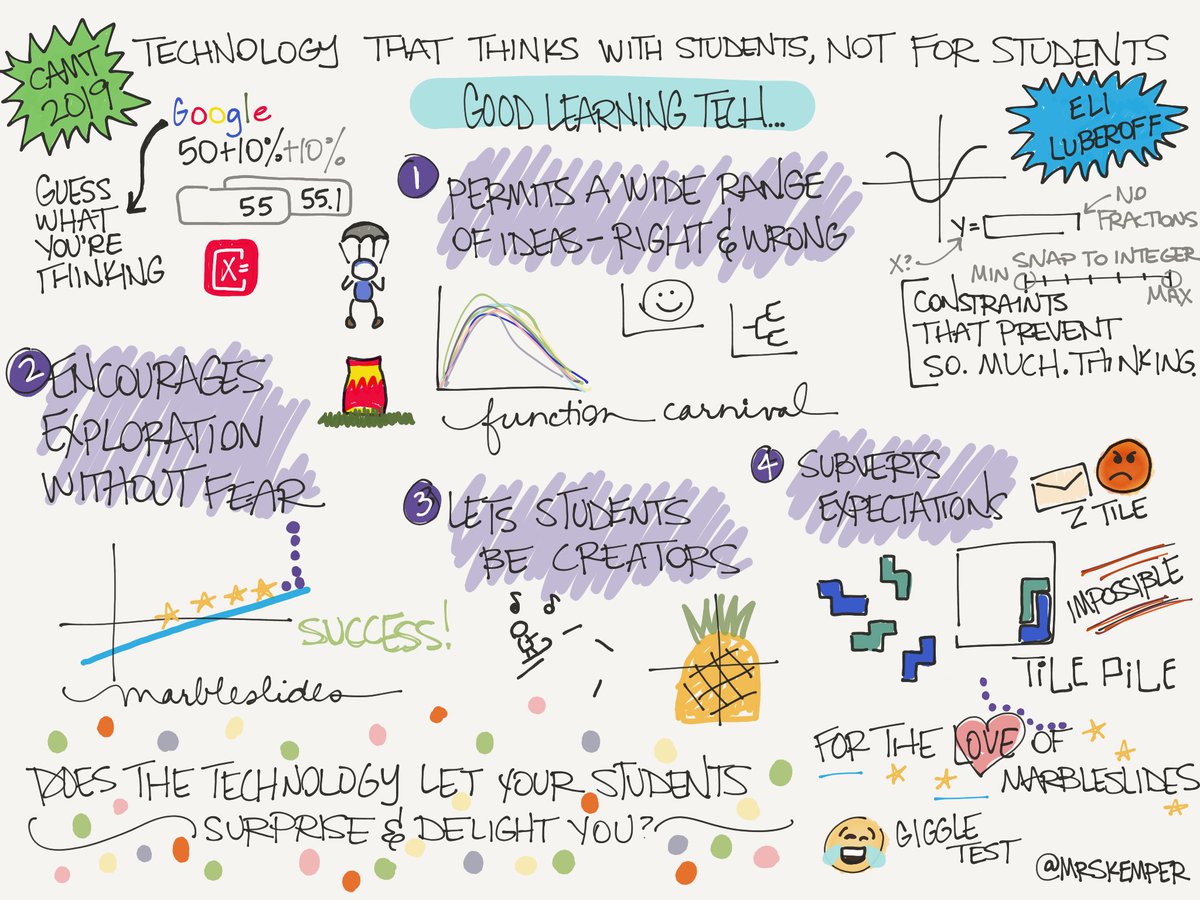 CAMT
2019
TECHNOLOGY THAT THINKS WITH STUDENTS, NOT FOR STUDENTS
GOOD LEARNING TECH...
ELI
LUBEROFF
Google
50+10%+10%
55
55.1
GUESS
WHAT
YOU'RE
THINKING
X=
1
PERMITS A WIDE RANGE
OF IDEAS - RIGHT & WRONG
function carnival
y=
NO
FRACTIONS
X?
SNAP TO INTEGER
MIN
MAX
CONSTRAINTS
THAT PREVENT
SO. MUCH. THINKING.
2
ENCOURAGES
EXPLORATION
WITHOUT FEAR
SUCCESS!
marbleslides
3
LETS STUDENTS
BE CREATORS
4
SUBVERTS
EXPECTATIONS
Z TILE
IMPOSSIBLE
TILE PILE
FOR THE LOVE OF
MARBLESLIDES
GIGGLE
TEST
DOES THE TECHNOLOGY LET YOUR STUDENTS
SURPRISE & DELIGHT YOU?
@MRSKEMPER